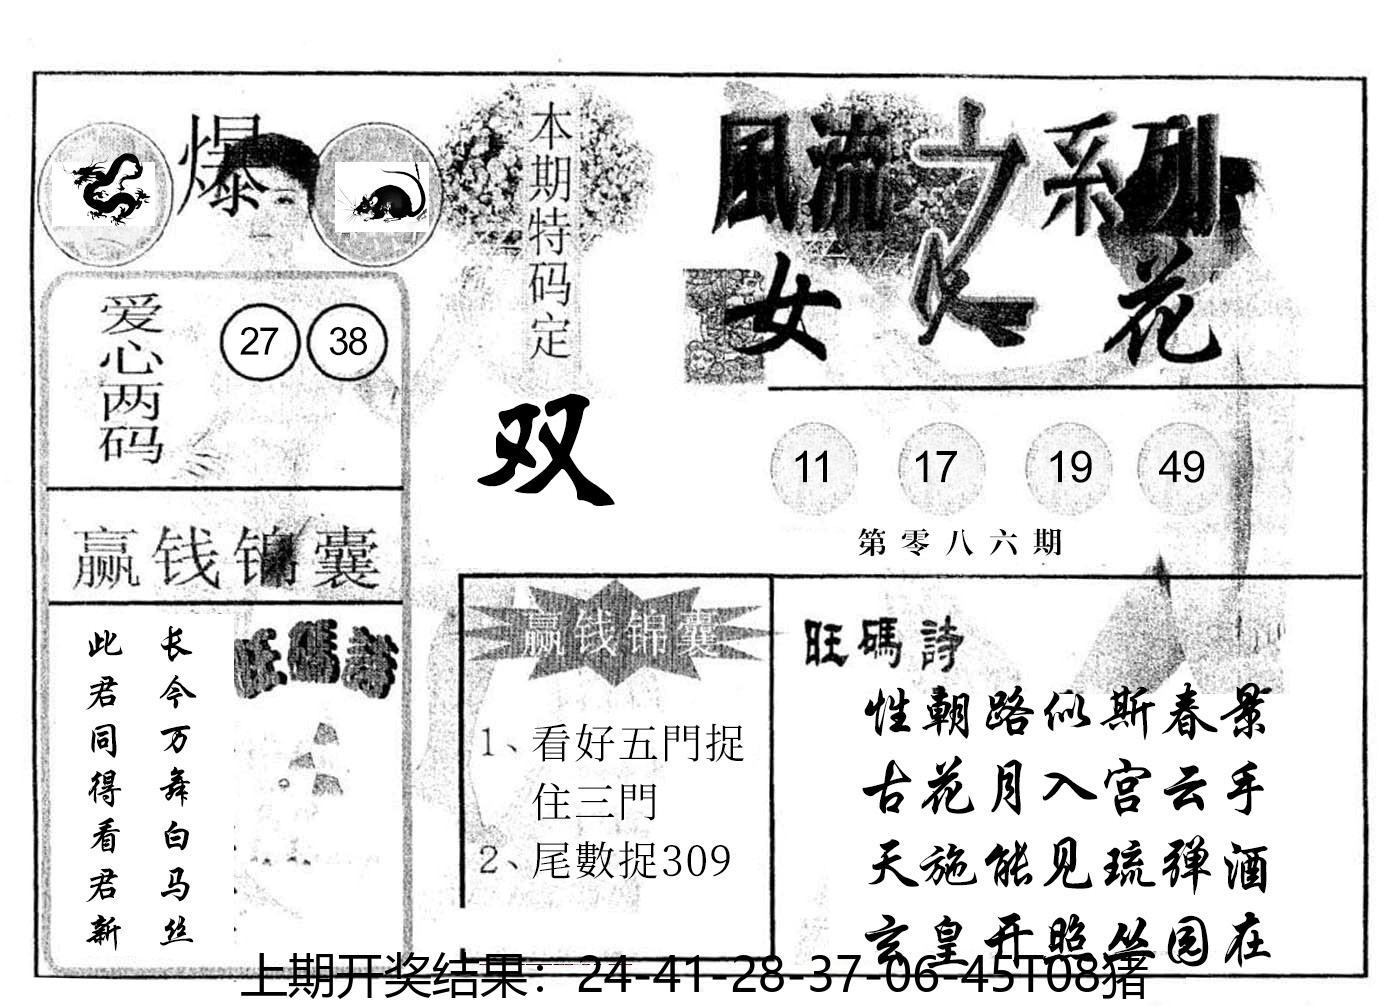 爆
本期特码定
双
風流之系列
女人花
爱心两码
27 38
11 17 19 49
第零八六期
赢钱锦囊
长今万舞白马丝
此君同得看君新
旺碼詩
赢钱锦囊
1、看好五門捉
住三門
2、尾數捉309
旺碼詩
性朝路似斯春景
古花月入宫云手
天施能见琉弹酒
玄皇开照丝园在
上期开奖结果：24-41-28-37-06-45T08猪